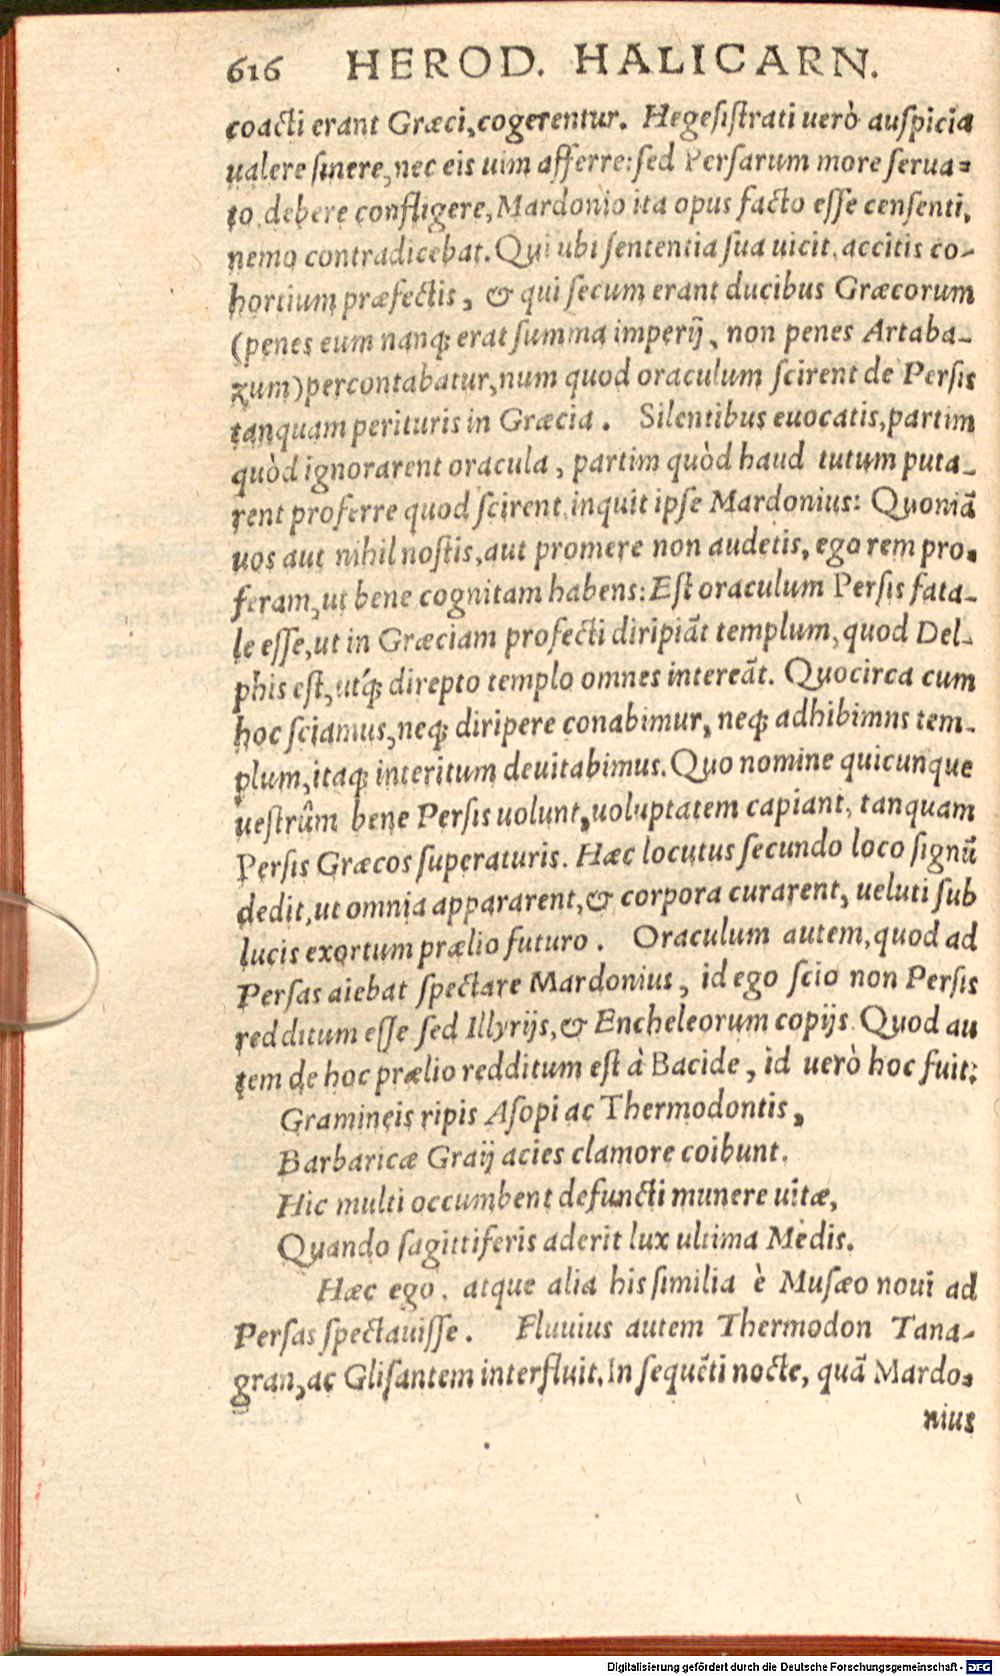 616 HEROD. HALICARN.
coacti erant Græci, cogerentur. Hegesistrati uerò auspicia
ualere sinere, nec eis uim afferre: sed Persarum more serua-
to debere confligere, Mardonio ita opus facto esse censenti,
nemo contradicebat. Qui ubi sententia sua uicit, accitis co-
hortium præfectis, & qui secum erant ducibus Græcorum
(penes eum nanq; erat summa imperij, non penes Artaba-
zum) percontabatur, num quod oraculum scirent de Persis
tanquam perituris in Græcia. Silentibus euocatis, partim
quòd ignorarent oracula, partim quòd haud tutum puta-
rent proferre quod scirent, inquit ipse Mardonius: Quoniā
uos aut nihil nostis, aut promere non audetis, ego rem pro-
feram, ut bene cognitam habens: Est oraculum Persis fata-
le esse, ut in Græciam profecti diripiāt templum, quod Del-
phis est, utq́; direpto templo omnes intereāt. Quocirca cum
hoc sciamus, neq; diripere conabimur, neq; adhibimns tem-
plum, itaq; interitum deuitabimus. Quo nomine quicunque
uestrûm bene Persis uolunt, uoluptatem capiant, tanquam
Persis Græcos superaturis. Hæc locutus secundo loco signū
dedit, ut omnia appararent, & corpora curarent, ueluti sub
lucis exortum prælio futuro. Oraculum autem, quod ad
Persas aiebat spectare Mardonius, id ego scio non Persis
redditum esse sed Illyrijs, & Encheleorum copijs. Quod au
tem de hoc prælio redditum est à Bacide, id uerò hoc fuit:
Gramineis ripis Asopi ac Thermodontis,
Barbaricæ Graij acies clamore coibunt.
Hic multi occumbent defuncti munere uitæ,
Quando sagittiferis aderit lux ultima Medis.
Hæc ego, atque alia his similia è Musæo noui ad
Persas spectauisse. Fluuius autem Thermodon Tana-
gran, ac Glisantem interfluit. In sequēti nocte, quā Mardo-
nius
Digitalisierung gefördert durch die Deutsche Forschungsgemeinschaft - DFG